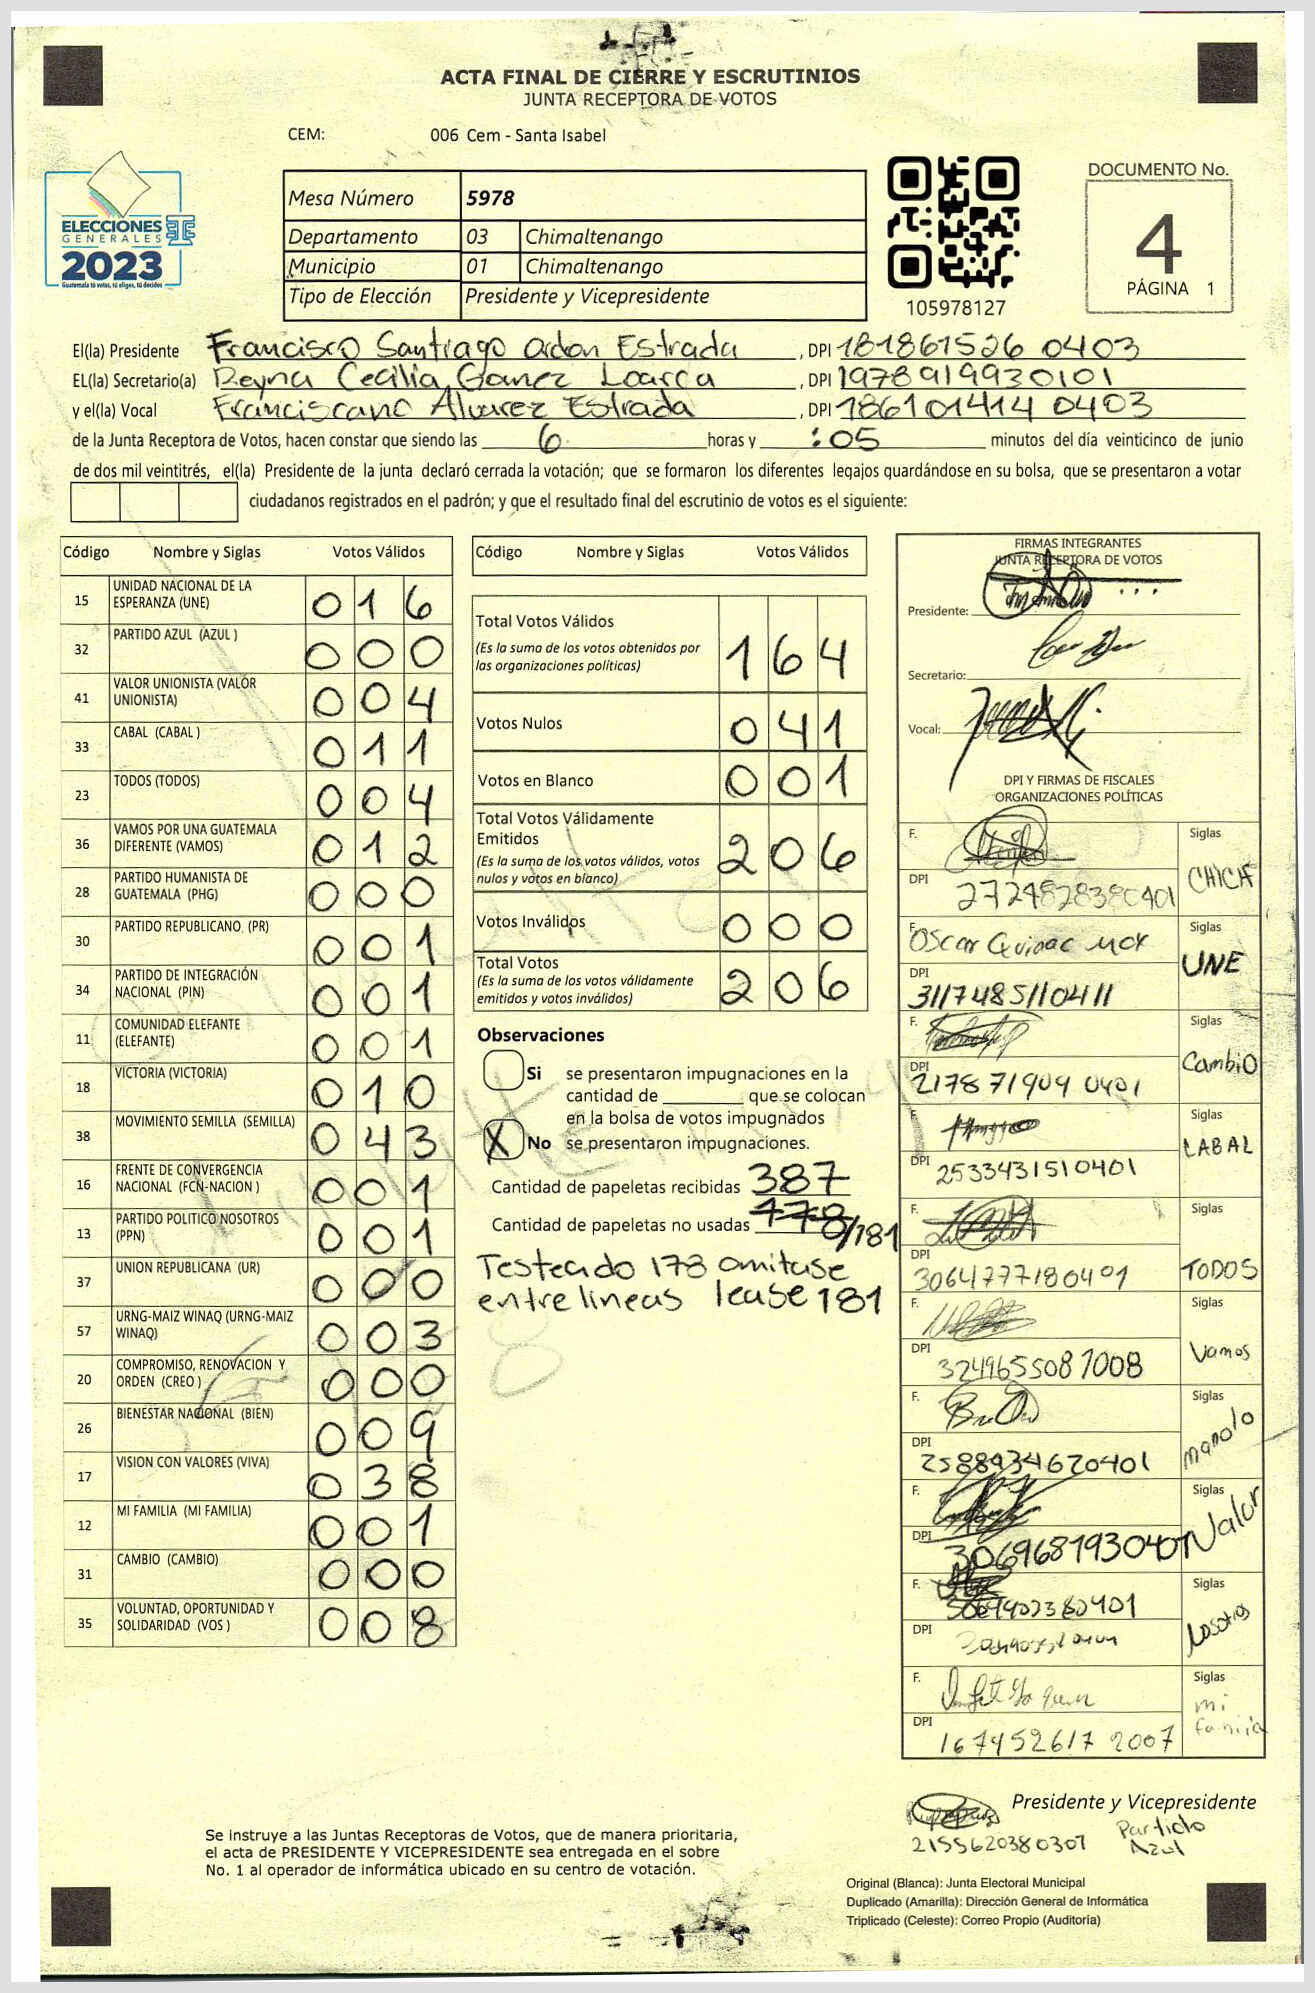 ACTA FINAL DE CIERRE Y ESCRUTINIOS
JUNTA RECEPTORA DE VOTOS
CEM: 006 Cem - Santa Isabel
ELECCIONES
GENERALES
2023
Guatemala tú votas, tú eliges, tú decides
Mesa Número 5978
Departamento 03 Chimaltenango
Municipio 01 Chimaltenango
Tipo de Elección Presidente y Vicepresidente
105978127
DOCUMENTO No.
4
PÁGINA 1
El(la) Presidente Francisco Santiago Ordon Estrada , DPI 181861526 0403
EL(la) Secretario(a) Reyna Cecilia Gamez Loarca , DPI 1978919930101
y el(la) Vocal Franciscano Alvarez Estrada , DPI 186101414 0403
de la Junta Receptora de Votos, hacen constar que siendo las 6 horas y :05 minutos del día veinticinco de junio
de dos mil veintitrés, el(la) Presidente de la junta declaró cerrada la votación; que se formaron los diferentes legajos guardándose en su bolsa, que se presentaron a votar
ciudadanos registrados en el padrón; y que el resultado final del escrutinio de votos es el siguiente:
Código Nombre y Siglas Votos Válidos
15 UNIDAD NACIONAL DE LA ESPERANZA (UNE) 016
32 PARTIDO AZUL (AZUL ) 000
41 VALOR UNIONISTA (VALOR UNIONISTA) 004
33 CABAL (CABAL ) 011
23 TODOS (TODOS) 004
36 VAMOS POR UNA GUATEMALA DIFERENTE (VAMOS) 012
28 PARTIDO HUMANISTA DE GUATEMALA (PHG) 000
30 PARTIDO REPUBLICANO (PR) 001
34 PARTIDO DE INTEGRACIÓN NACIONAL (PIN) 001
11 COMUNIDAD ELEFANTE (ELEFANTE) 001
18 VICTORIA (VICTORIA) 010
38 MOVIMIENTO SEMILLA (SEMILLA) 043
16 FRENTE DE CONVERGENCIA NACIONAL (FCN-NACION ) 001
13 PARTIDO POLITICO NOSOTROS (PPN) 001
37 UNION REPUBLICANA (UR) 000
57 URNG-MAIZ WINAQ (URNG-MAIZ WINAQ) 003
20 COMPROMISO, RENOVACION Y ORDEN (CREO ) 000
26 BIENESTAR NACIONAL (BIEN) 009
17 VISION CON VALORES (VIVA) 038
12 MI FAMILIA (MI FAMILIA) 001
31 CAMBIO (CAMBIO) 000
35 VOLUNTAD, OPORTUNIDAD Y SOLIDARIDAD (VOS ) 008
Código Nombre y Siglas Votos Válidos
Total Votos Válidos 164
(Es la suma de los votos obtenidos por
las organizaciones políticas)
Votos Nulos 041
Votos en Blanco 001
Total Votos Válidamente
Emitidos 206
(Es la suma de los votos válidos, votos
nulos y votos en blanco)
Votos Inválidos 000
Total Votos 206
(Es la suma de los votos válidamente
emitidos y votos inválidos)
Observaciones
Si se presentaron impugnaciones en la
cantidad de ________ que se colocan
en la bolsa de votos impugnados
X No se presentaron impugnaciones.
Cantidad de papeletas recibidas 387
Cantidad de papeletas no usadas 178/181
Testeado 178 omitase
entrelineas lease 181
FIRMAS INTEGRANTES
JUNTA RECEPTORA DE VOTOS
Presidente:
Secretario:
Vocal:
DPI Y FIRMAS DE FISCALES
ORGANIZACIONES POLÍTICAS
F. Siglas
DPI 2724828380401
F. Oscar Quinac Siglas UNE
DPI 3117485110411
F. Siglas Cambio
DPI 217871909 0401
F. Siglas CABAL
DPI 2533431510401
F. Siglas TODOS
DPI 3064777180401
F. Siglas Vamos
DPI 3249655087008
F. Siglas manolo
DPI 2588934670401
F. Siglas Valor
DPI 3069681930401
F. Siglas Nosotros
3069402380401
DPI
F. Siglas mi familia
DPI 167952617 2007
Presidente y Vicepresidente
2155620380307 Partido
Azul
Se instruye a las Juntas Receptoras de Votos, que de manera prioritaria,
el acta de PRESIDENTE Y VICEPRESIDENTE sea entregada en el sobre
No. 1 al operador de informática ubicado en su centro de votación.
Original (Blanca): Junta Electoral Municipal
Duplicado (Amarilla): Dirección General de Informática
Triplicado (Celeste): Correo Propio (Auditoría)